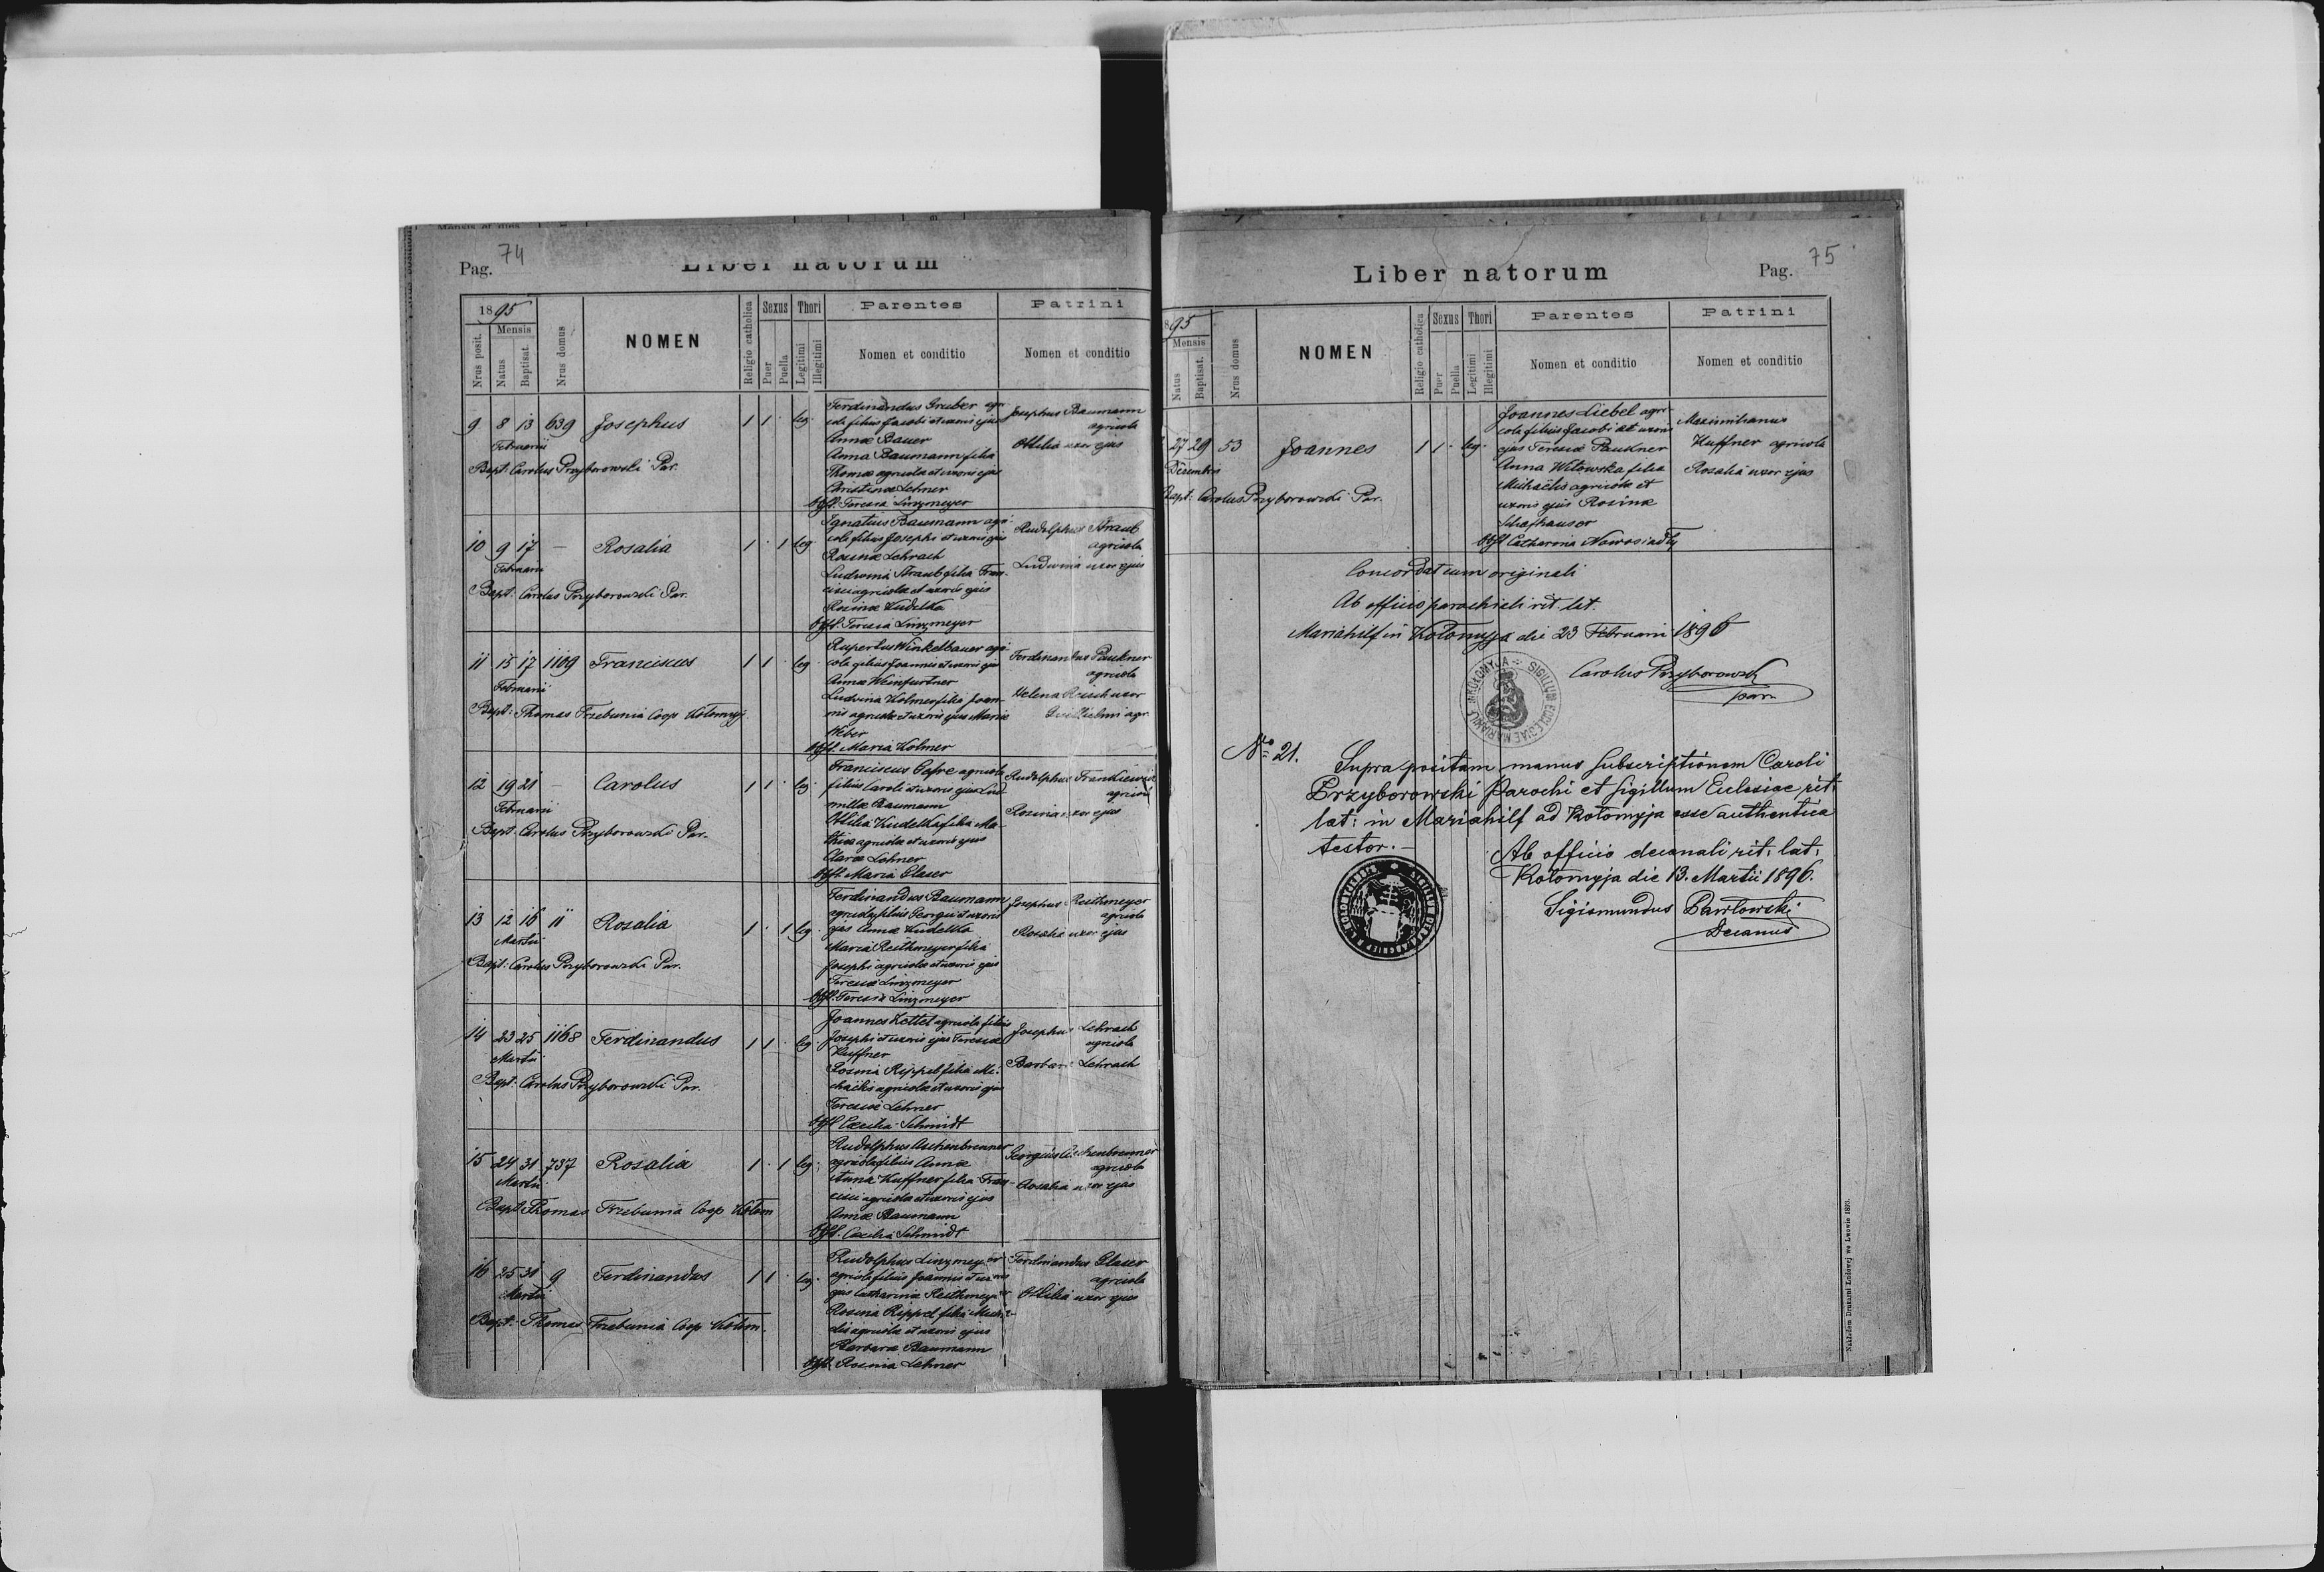 Pag. 74
Liber natorum
1895
Mensis
Nrus posit.
Natus
Baptisat.
Nrus domus
NOMEN
Religio catholica
Sexus
Puer
Puella
Thori
Legitimi
Illegitimi
Parentes
Nomen et conditio
Patrini
Nomen et conditio
9 8 13 639 Josephus 1 1 · leg.
Februarii
Bapt: Carolus Przyborowski Par.
Ferdinandus Gruber agri-
cola filius Jacobi et uxoris ejus
Annæ Bauer
Anna Baumann filia
Thomæ agricolæ et uxoris ejus
Christinæ Lehner
Obst. Teresia Linzmeyer
Josephus Baumann
agricola
Ottilia uxor ejus
10 9 17 — Rosalia 1 · 1 leg.
Februarii
Bapt: Carolus Przyborowski Par.
Ignatius Baumann agri-
cola filius Josephi et uxoris ejus
Rosinæ Lehrach
Ludwina Straub filia Fran-
cisci agricolæ et uxoris ejus
Rosinæ Kudelka
Obst. Teresia Linzmeyer
Rudolphus Straub
agricola
Ludwina uxor ejus
11 15 17 1109 Franciscus 1 1 · leg.
Februarii
Bapt: Thomas Trzebunia Coop Kołomyj.
Rupertus Winkelbauer agri-
cola filius Joannis et uxoris ejus
Annæ Weinfurtner
Ludvina Kolmer filia Joan-
nis agricolæ et uxoris ejus Mariæ
Weber
Obst. Maria Kolmer
Ferdinandus Paukner
agricola
Helena uxor
agr.
12 19 21 — Carolus 1 1 · leg.
Februarii
Bapt: Carolus Przyborowski Par.
Franciscus agricola
filius Caroli et uxoris ejus Lud-
millæ Baumann
Ottilia Kudelka filia Ma-
thiæ agricolæ et uxoris ejus
Claræ Lehner
Obst. Maria Glaser
Rudolphus Frankiewicz
agricola
Rosina uxor ejus
13 12 16 11 Rosalia 1 · 1 leg.
Martii
Bapt: Carolus Przyborowski Par.
Ferdinandus Baumann
agricola filius Georgii et uxoris
ejus Annæ Kudelka
Maria Reithmeyer filia
Josephi agricolæ et uxoris ejus
Teresiæ Linzmeyer
Obst. Teresia Linzmeyer
Josephus Reithmeyer
agricola
Rosalia uxor ejus
14 23 25 1168 Ferdinandus 1 1 · leg.
Martii
Bapt: Carolus Przyborowski Par.
Joannes Zettel agricola filius
Josephi et uxoris ejus Teresiæ
Kuffner
Rosina Rippel filia Mi-
chaëlis agricolæ et uxoris ejus
Teresiæ Lehner
Obst. Cæcilia Schmidt
Josephus Lehrach
agricola
Barbara Lehrach
15 24 31 737 Rosalia 1 · 1 leg.
Martii
Bapt: Thomas Trzebunia Coop Kołom
Rudolphus Aschenbrenner
agricola filius Annæ
Anna Kuffner filia Fran-
cisci agricolæ et uxoris ejus
Annæ Baumann
Obst. Cæcilia Schmidt
Georgius Aschenbrenner
agricola
Rosalia uxor ejus
16 25 31 9 Ferdinandus 1 1 · leg.
Martii
Bapt: Thomas Trzebunia Coop Kołom.
Rudolphus Linzmeyer
agricola filius Joannis et uxoris
ejus Catharinæ Reithmeyer
Rosina Rippel filia Michaë-
lis agricolæ et uxoris ejus
Barbaræ Baumann
Obst. Rosina Lehner
Ferdinandus Glaser
agricola
Ottilia uxor ejus
Liber natorum
Pag. 75
895
Mensis
Natus
Baptisat.
Nrus domus
NOMEN
Religio catholica
Sexus
Puer
Puella
Thori
Legitimi
Illegitimi
Parentes
Nomen et conditio
Patrini
Nomen et conditio
27 29 53 Joannes 1 1 · leg.
Decembris
Bapt: Carolus Przyborowski Par.
Joannes Liebel agri-
cola filius Jacobi et uxoris
ejus Teresiæ Paukner
Anna Witowska filia
Michaëlis agricolæ et
uxoris ejus Rosinæ
Schafhauser
Obst Catharina Nawosiadły
Maximilianus
Kuffner agricola
Rosalia uxor ejus
Concordat cum originali
Ab officio parochiali rit. lat.
Mariahilf in Kołomyja die 23 Februarii 1896
Carolus Przyborowski
par.
SIGILLUM ECCLESIAE MARIAHILF IN KOŁOMYJA
Nro 21.
Supra positam manus subscriptionem Caroli
Przyborowski Parochi et sigillum Eclesiae rit:
lat: in Mariahilf ad Kołomyja esse authentica
testor. —
Ab officio decanali rit: lat:
Kołomyja die 13. Martii 1896.
Sigismundus Pawłowski
Decanus
Nakładem Drukarni Ludowej we Lwowie 1893.